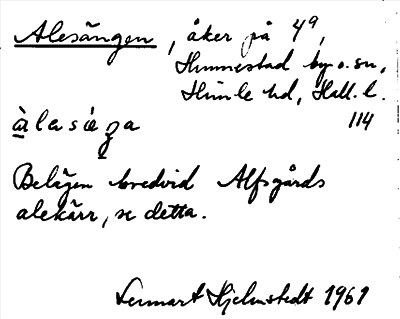 Alesängen, åker på 4⁹,
Hunnestad by o. sn,
Himle hd, Hall. l.
àlasiŋa 114
Belägen bredvid Alfsgårds
alekärr, se detta.
Lennart Hjelmstedt 1961